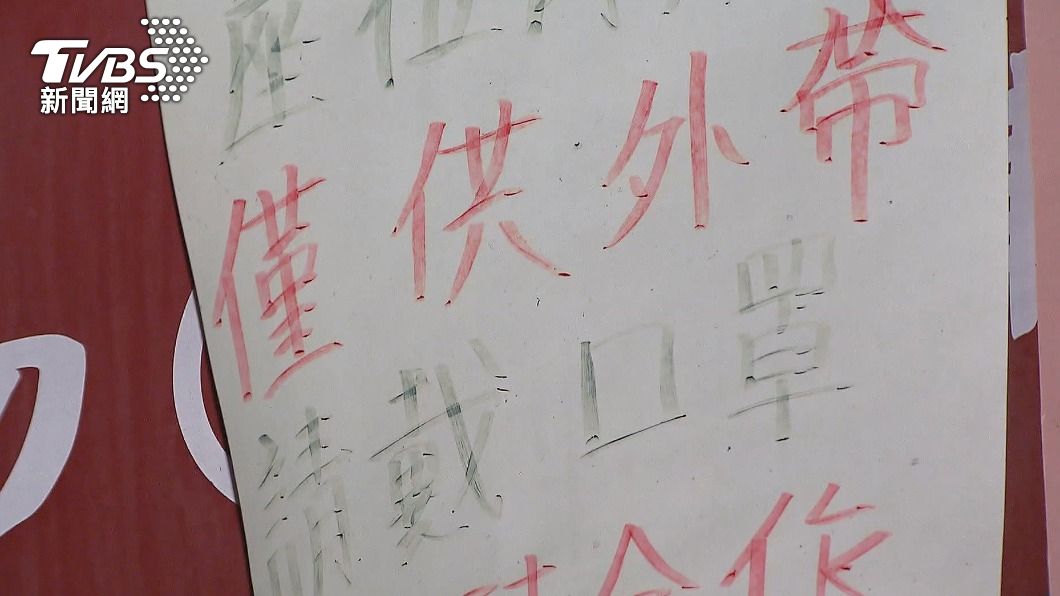 TVBS
新聞網
座位
僅供外帶
請戴口罩
合作